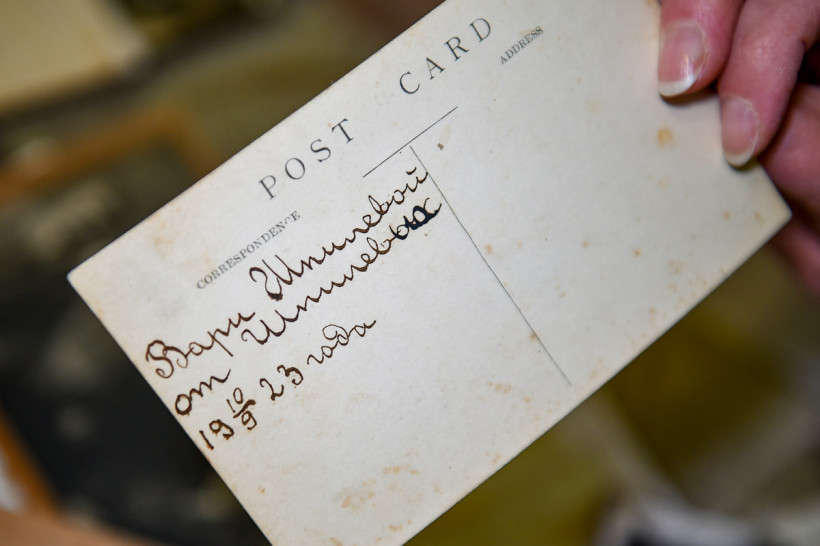 POST CARD
CORRESPONDENCE
ADDRESS
Вари Шпилевой
от Шпилевых
19 10/9 23 года